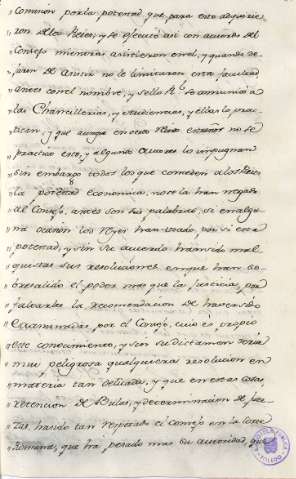 comun por la potestad que para esto adquirie-
ron los Reies, y se executó asi con acuerdo del
Consejo mientras asistieron en el, y quando de-
jaron de asistir no le limitaron esta facultad
antes con el nombre, y sello Rl. se comunicó a
las Chancillerias, y Audiencias, y ellas lo prac-
tican, y que aunque en otros no se
practica esto, y algunos Autores lo impugnan
sin embargo todos los que conceden a los Reies
la potestad economica, no se la han negado
al Consejo, antes son sus palabras, si en algu-
na ocasion los Reyes han usado por si esta
potestad, y sin su acuerdo han sido mal
quistas sus resoluciones en que han so-
bresalido el poder mas que la justicia, por
faltarles la recomendacion de haver sido
examinadas por el Consejo, cuio es propio
este conocimiento, y sin su dictamen seria
mui peligrosa qualquiera resolucion en
materia tan delicada, y que en estas cosas
retencion de Bulas, y determinacion de fuer-
zas, ha sido tan respetado el Consejo en la Corte
Romana, que ha pesado mas su autoridad, que
TOLEDO